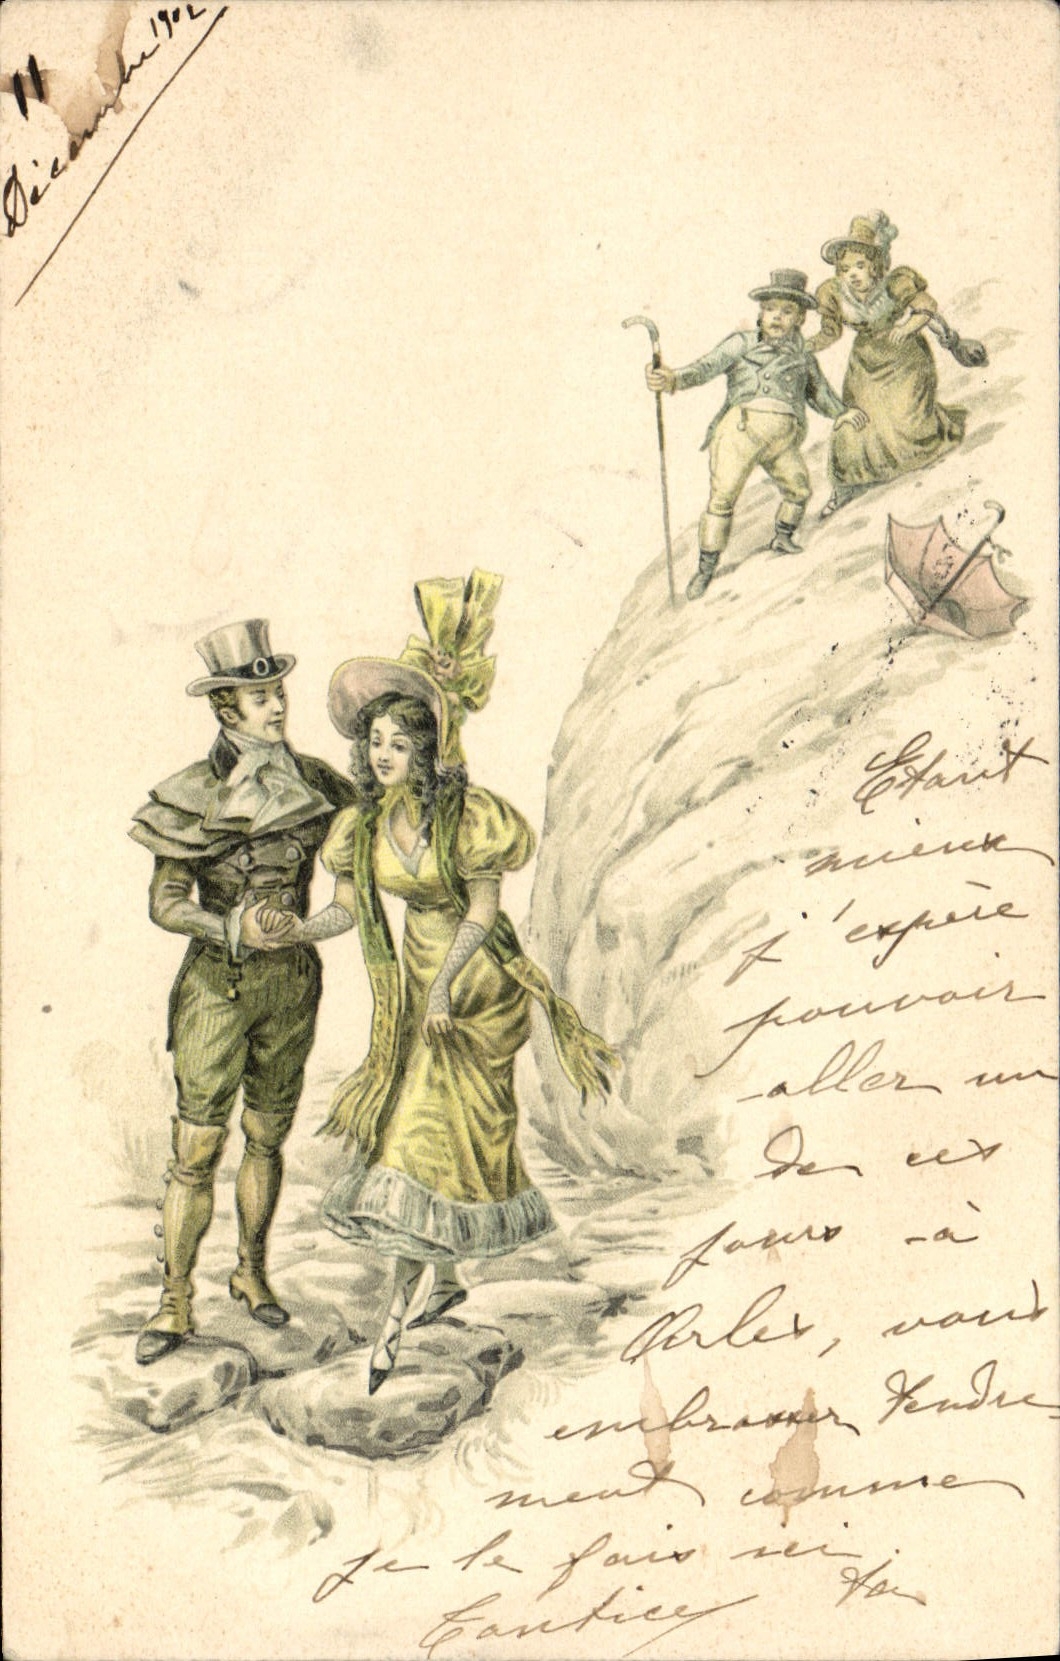 11
Décembre 1902
Etant
mieux
j'espère
pouvoir
aller un
de ces
jours à
Arles, vous
embrasser tendre-
ment comme
je le fais ici.
ta